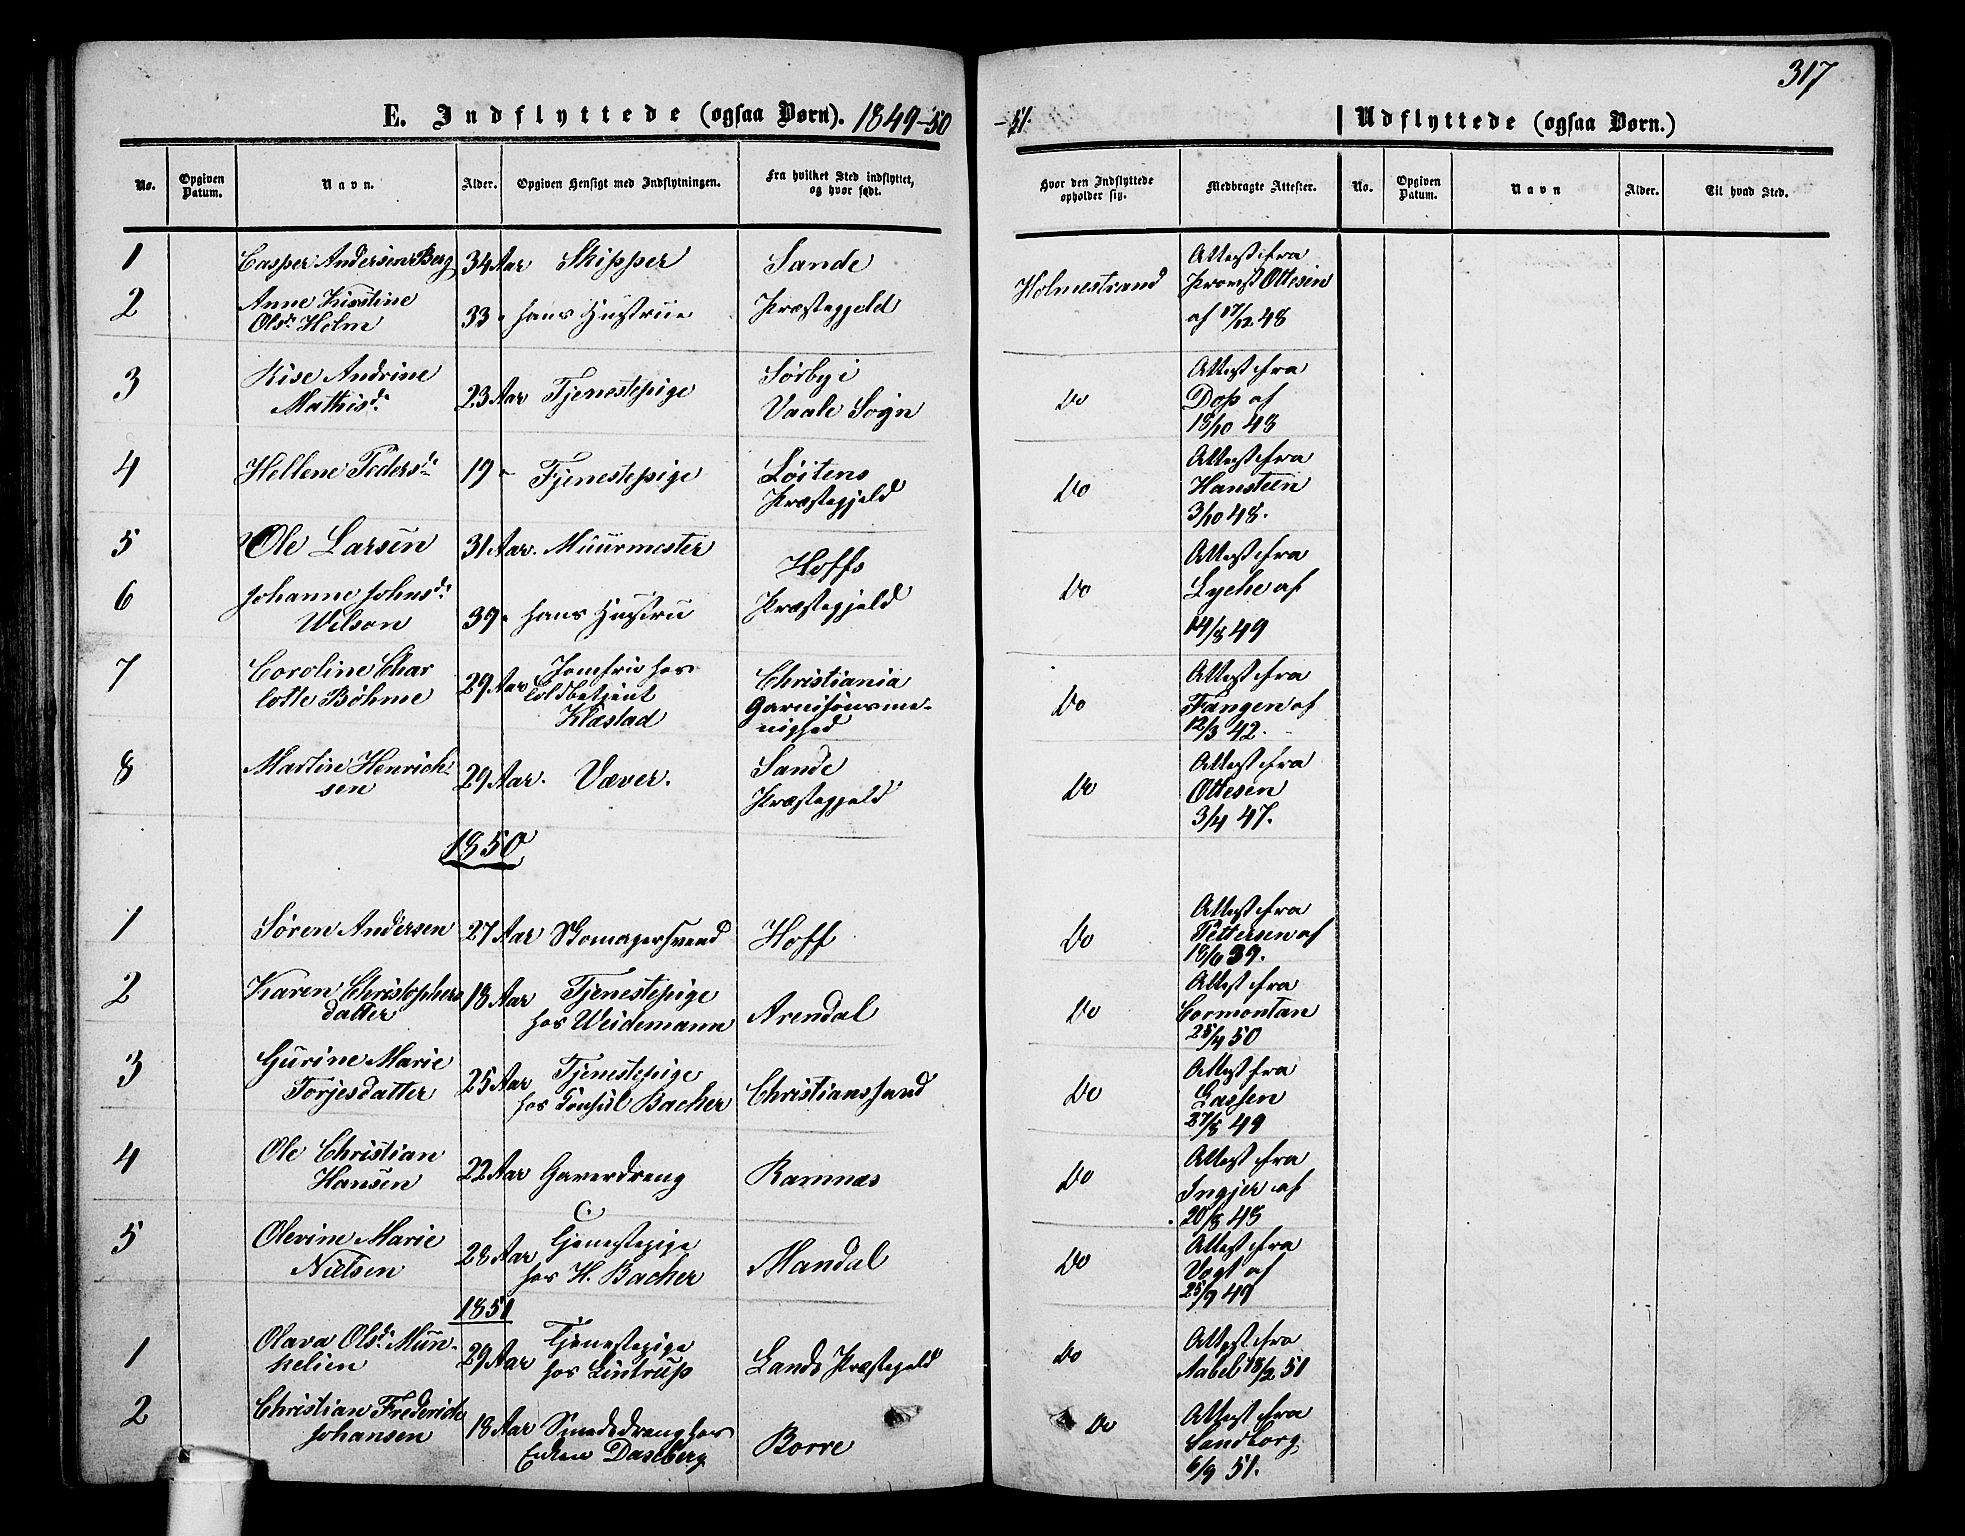 317
E. Indflyttede (ogsaa Børn). 1849-50
-51.
Udflyttede (ogsaa Børn.)
No. Opgiven Datum. Navn. Alder. Opgiven Hensigt med Indflytningen. Fra hvilket Sted indflyttet, og hvor født.
Hvor den Indflyttede opholder sig. Medbragte Attester. No. Opgiven Datum. Navn Alder. Til hvad Sted.
1 Casper Andersen Berg 34 Aar Skipper Sande
2 Anne Kirstine Olsd. Holm 33 " hans Hustrue Præstegjeld
Holmestrand Attest fra Provst Ottesen af 17/12 48
3 Lise Andrine Mathisd. 23 Aar Tjenestepige Sörby i Vaale Sogn
Do Attest fra Dop af 18/10 48
4 Hellene Peders d. 19 " Tjenestepige Löitens Præstegjeld
Do Attest fra Hansteen 3/10 48.
5 Ole Larsen 31 Aar. Muurmester Hoffs
6 Johanne Johnsd. Wilson 39 " hans Hustru Præstegjeld
Do Attest fra Lyche af 14/8 49
7 Caroline Charlotte Böhme 29 Aar Jomfru hos Toldbetjent Klæstad Christiania Garnisonsmenighed
Do Attest fra Fangen af 12/3 42.
8 Martin Henrichsen 29 Aar. Væver. Sande Præstegjeld
Do Attest fra Ottesen 3/4 47.
1850
1 Sören Andersen 27 Aar Skomagersvend Hoff
Do Attest fra Pettersen af 18/6 39.
2 Karen Christophersdatter 18 Aar Tjenestepige hos Weidemann Arendal
Do Attest fra Cormontan 25/4 50
3 Gurine Marie Torjesdatter 25 Aar Tjenestepige hos Consul Backer Christianssand
Do Attest fra Lassen 27/8 49
4 Ole Christian Hansen 22 Aar Garverdreng Ramnæs
Do Attest fra Ingjer af 20/8 48
5 Olevine Marie Nielsen 28 Aar Tjenestepige hos H. Backer Mandal
Do Attest fra Vogt af 25/9 49
1851
1 Olava Olsd. Munkelien 29 Aar Tjenestepige hos Lintrup Lands Præstegjeld
Do Attest fra Aabel 18/2 51
2 Christian Frederich Johansen 18 Aar Smededreng hos Enken Daseberg Borre
Do Attest fra Sandborg 6/9 51.